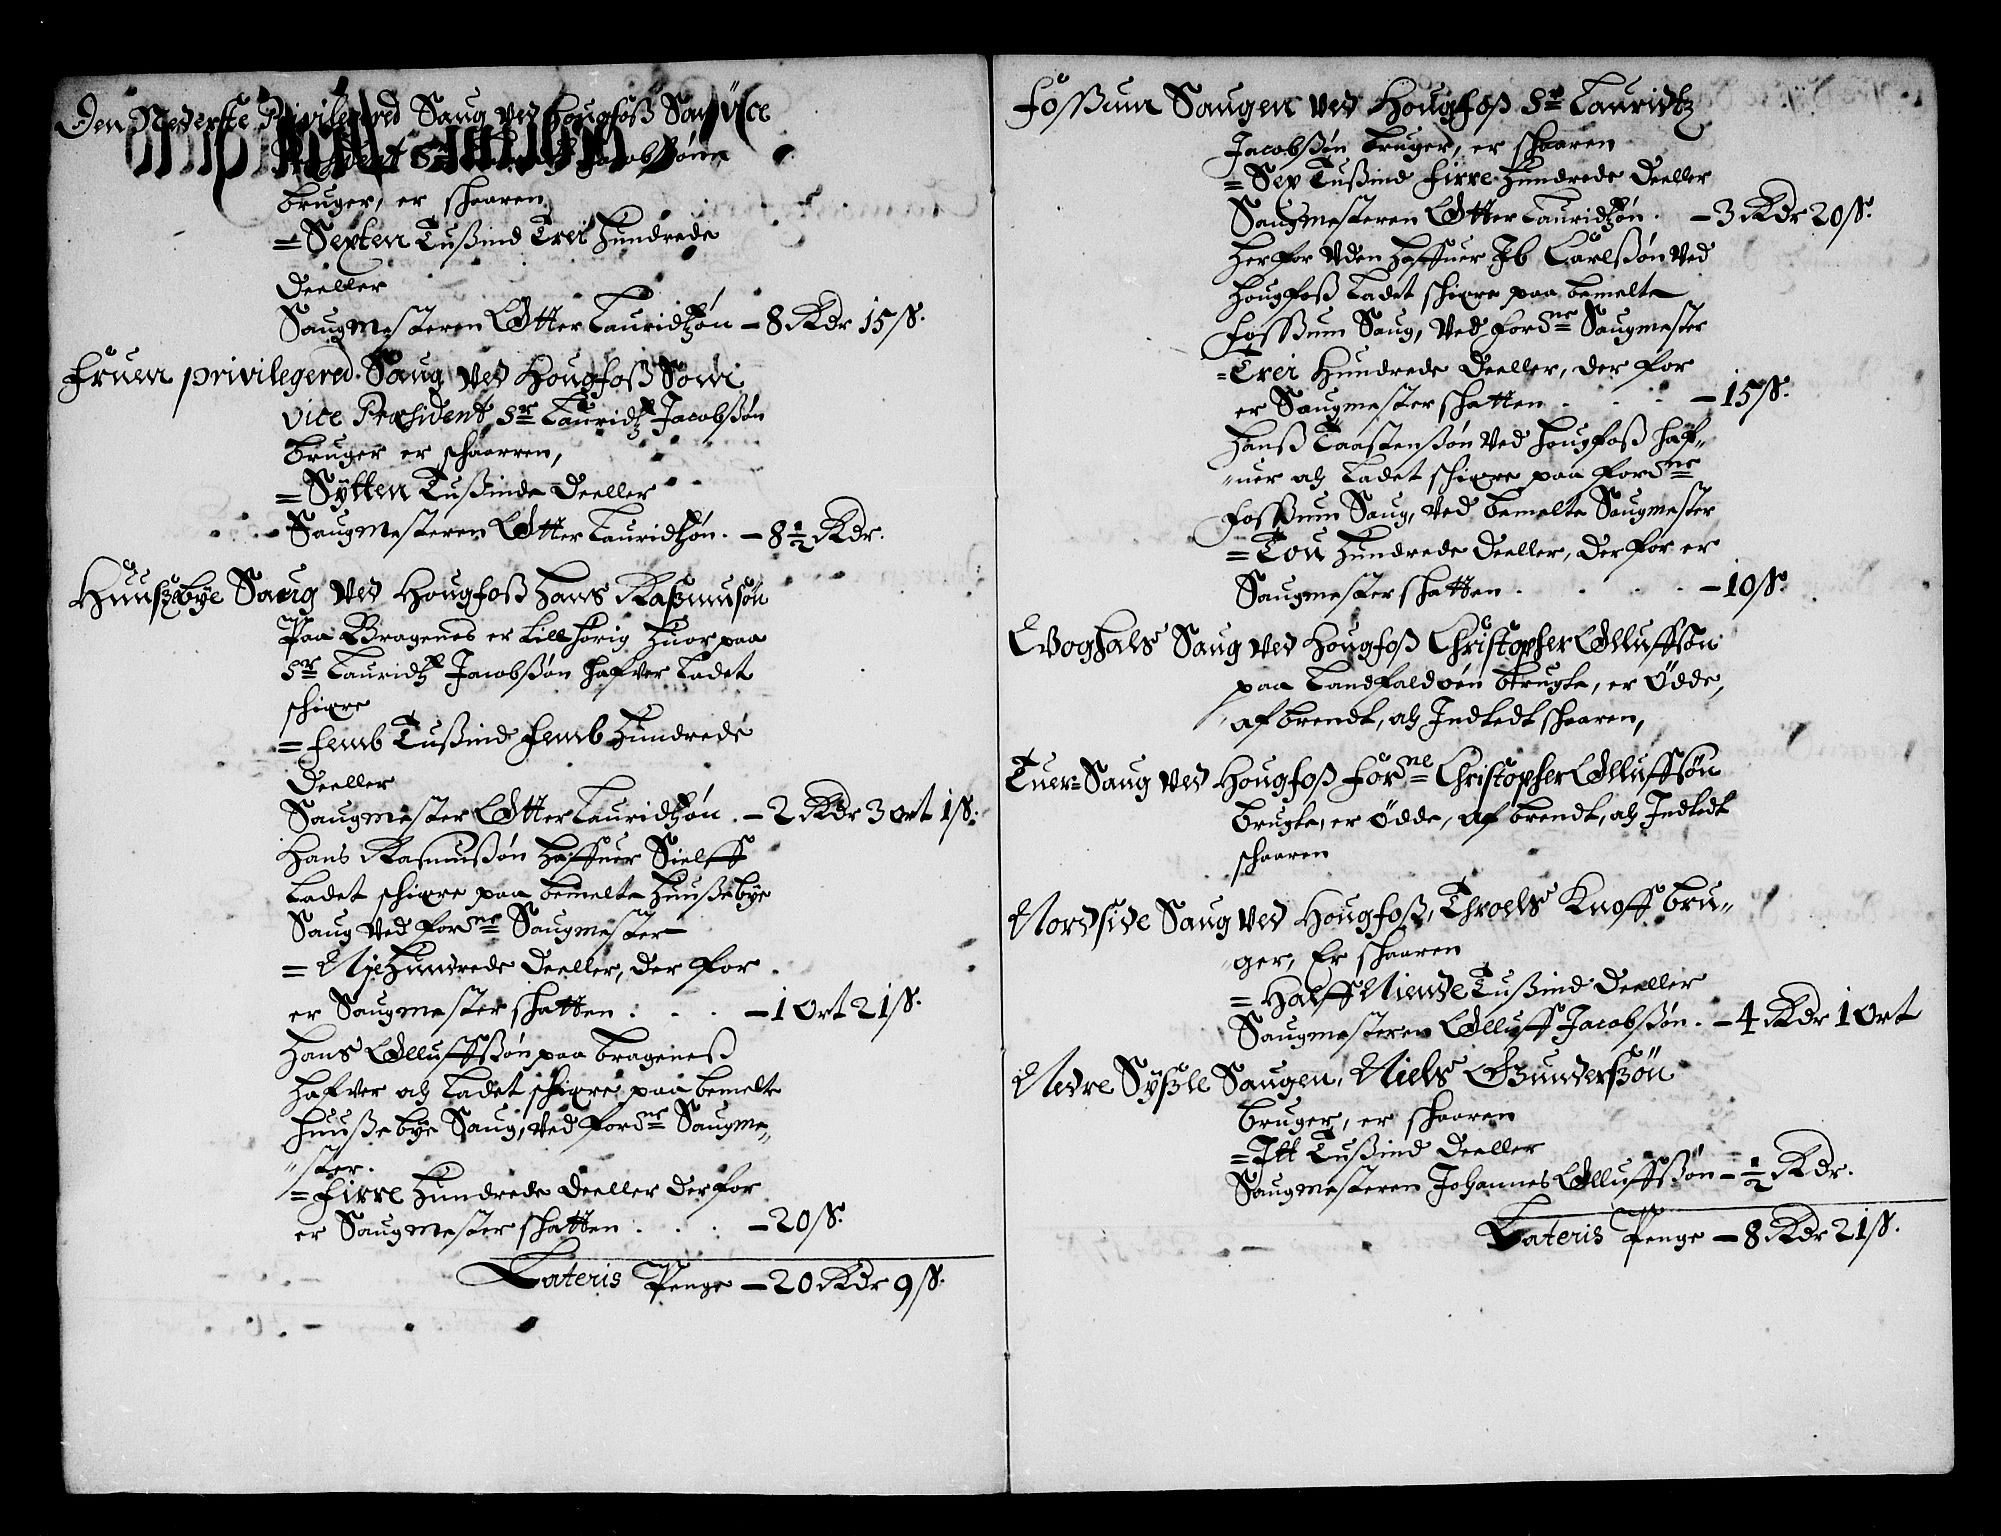 Den Nederste Privilegered Saug ved Hougfoß Som Vice
President Sr Lauridtz Jacobßøn
bruger, er skaaren
= Sexten Tußind Trei Hundrede
Deeller
Saugmesteren Otter Lauridtzøn – 8 Rdr 15 s.
Fruen privilegered Saug ved Hougfoß Som
vice Præsident Sr Lauridtz Jacobßøn
bruger er skaarren,
= Sÿtten Tußinde Deeller
Saugmesteren Otter Lauridtzøn. – 8 1/2 Rdr.
Huußebye Saug ved Hougfoß Hans Raßmusøn
Paa Bragenes er tillhørig huor paa
Sr Lauridtz Jacobßøn hafver ladet
skiære
= Femb Tußind Femb Hundrede
Deeller
Saugmester Otter Lauridtzøn. – 2 Rdr 3 ort 1 s.
Hans Rasmußøn haffuer Sielff
ladet skiære paa bemelte Huußebye
Saug ved fordne Saugmester
= Nje Hundrede Deeller, der for
er Saugmester skatten : – 1 Ort 21 s.
Hans Olluffßøn paa Brageneß
hafver och ladet skiære paa bemelte
Huußebye Saug, ved fordne Saugme„
„ster.
= Firre Hundrede Deeller der for
er Saugmester skatten . . . – 20 s.
Lateris Penge – 20 Rdr 9 s.
Foßum Saugen ved Hougfoß Sr Lauridtz
Jacobßøn bruger, er skaaren
= Sex Tußind Firre Hundrede Deeller
Saugmesteren Otter Lauridtzøn. – 3 Rdr 20 s.
Her for uden haffuer Ib Carlßøn ved
Hougfoß ladet skiære paa bemelte
Foßum Saug, ved fordne Saugmester
= Trei Hundrede Deeller, der for
er Saugmester skatten . . . – 15 s.
Hanß Taastenßøn ved Hougfoß haf„
„uer och ladet skiære paa fordne
Foßum Saug, ved bemelte Saugmester
= Tou Hundrede Deeller, der for er
Saugmester skatten . . . . – 10 s.
Woghals Saug ved Hougfoß Christopher Olluffsøn
paa Landfaldøen brugte, er Ödde,
af brendt, och Indtedt skaaren,
Tuer= Saug ved Hougfoß Forne Christopher Olluffsøn
brugte, er Ödde, af brendt, och Indtedt
skaaren
Nordside Saug ved Hougfoß, Throels Knoff bru„
„ger, Er skaaren
= Halff Niende Tußind Deeller
Saugmesteren Olluff Jacobßøn. – 4 Rdr 1 Ort
Nedre Sÿßle Saugen, Niels Gunderßøn
bruger, er skaaren
= Itt Tußind Deeller
Saugmesteren Johannes Olluffßøn – 1/2 Rdr.
Lateris Penge – 8 Rdr 21 s.